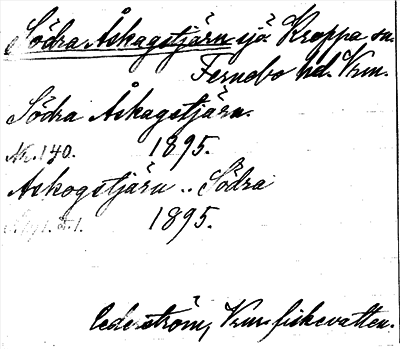 Södra Åskagstjärn sjö Kroppa sn.
Fernebo hd. Vrm.
Södra Åskagstjärn.
Nr. 140. 1895.
Askogstjärn .. Södra
1895.
Cederström, Vrms fiskevatten.